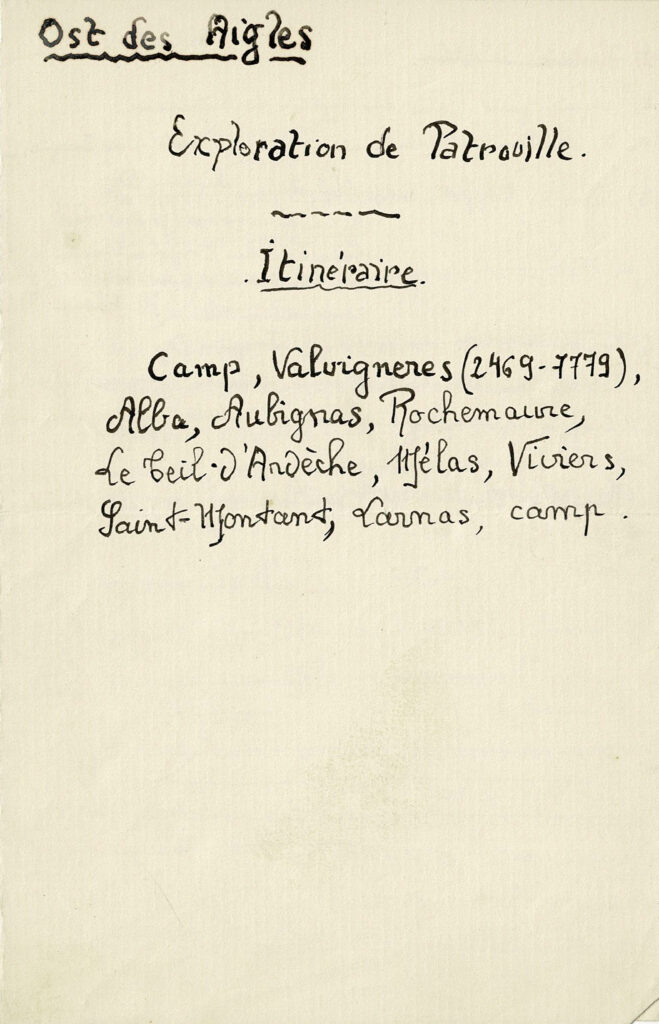 Ost des Aigles
Exploration de Patrouille.
. Itinéraire.
Camp, Valvigneres (2469-7779),
Alba, Aubignas, Rochemaure,
Le Teil-d'Ardèche, Mélas, Viviers,
Saint-Montant, Larnas, camp.